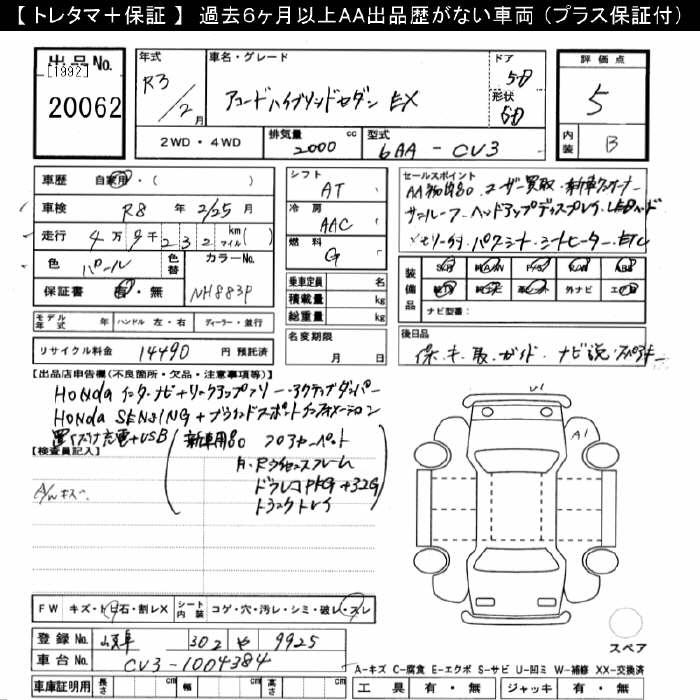 【 トレタマ＋保証 】 過去6ヶ月以上AA出品歴がない車両（プラス保証付）
出品No.
[1992]
20062
年式
R3
/2月
車名・グレード
アコードハイブリッドセダン EX
ドア
5D
形状
SD
評価点
5
内装
B
2WD・4WD
排気量
2000 cc
型式
6AA - CV3
車歴 自家用・( )
車検 R8 年 2/25 月
走行 4万9千232 km マイル ( )
色 パール 色替 カラーNo.
保証書 有・無 NH883P
シフト
AT
冷房
AAC
燃料
G
セールスポイント
サンルーフ・ヘッドアップディスプレイ・LEDヘッド
メモリー付パワーシート・シートヒーター・ETC
乗車定員 名
積載量 kg
総重量 kg
装備品
外ナビ
ナビ型番：
モデル年式 年 ハンドル 左・右 ディーラー・並行
リサイクル料金 14490 円 預託済
名変期限
月 日
後日品
保・キ・取・ガイド・ナビ説・スペアキー
【出品店申告欄(不良箇所・欠品・注意事項等)】
HONDA インターナビ＋リンクアップフリー・アクティブダンパー
HONDA SENSING＋ブラインドスポットインフォメーション
置くだけ充電＋USB
新車用品 フロアカーペット
F・Rライセンスフレーム
ドラレコPKG＋32G
トランクトレイ
【検査員記入】
A/Wキズ
U1
A1
FW キズ・トビ石・割レX シート内装 コゲ・穴・汚レ・シミ・破レ・スレ
登録No. 302 や 9925
車台No. CV3-1004384
スペア
A-キズ C-腐食 E-エクボ S-サビ U-凹ミ W-補修 XX-交換済
車庫証明用 長さ cm 幅 cm 高さ cm
工具 有・無 ジャッキ 有・無